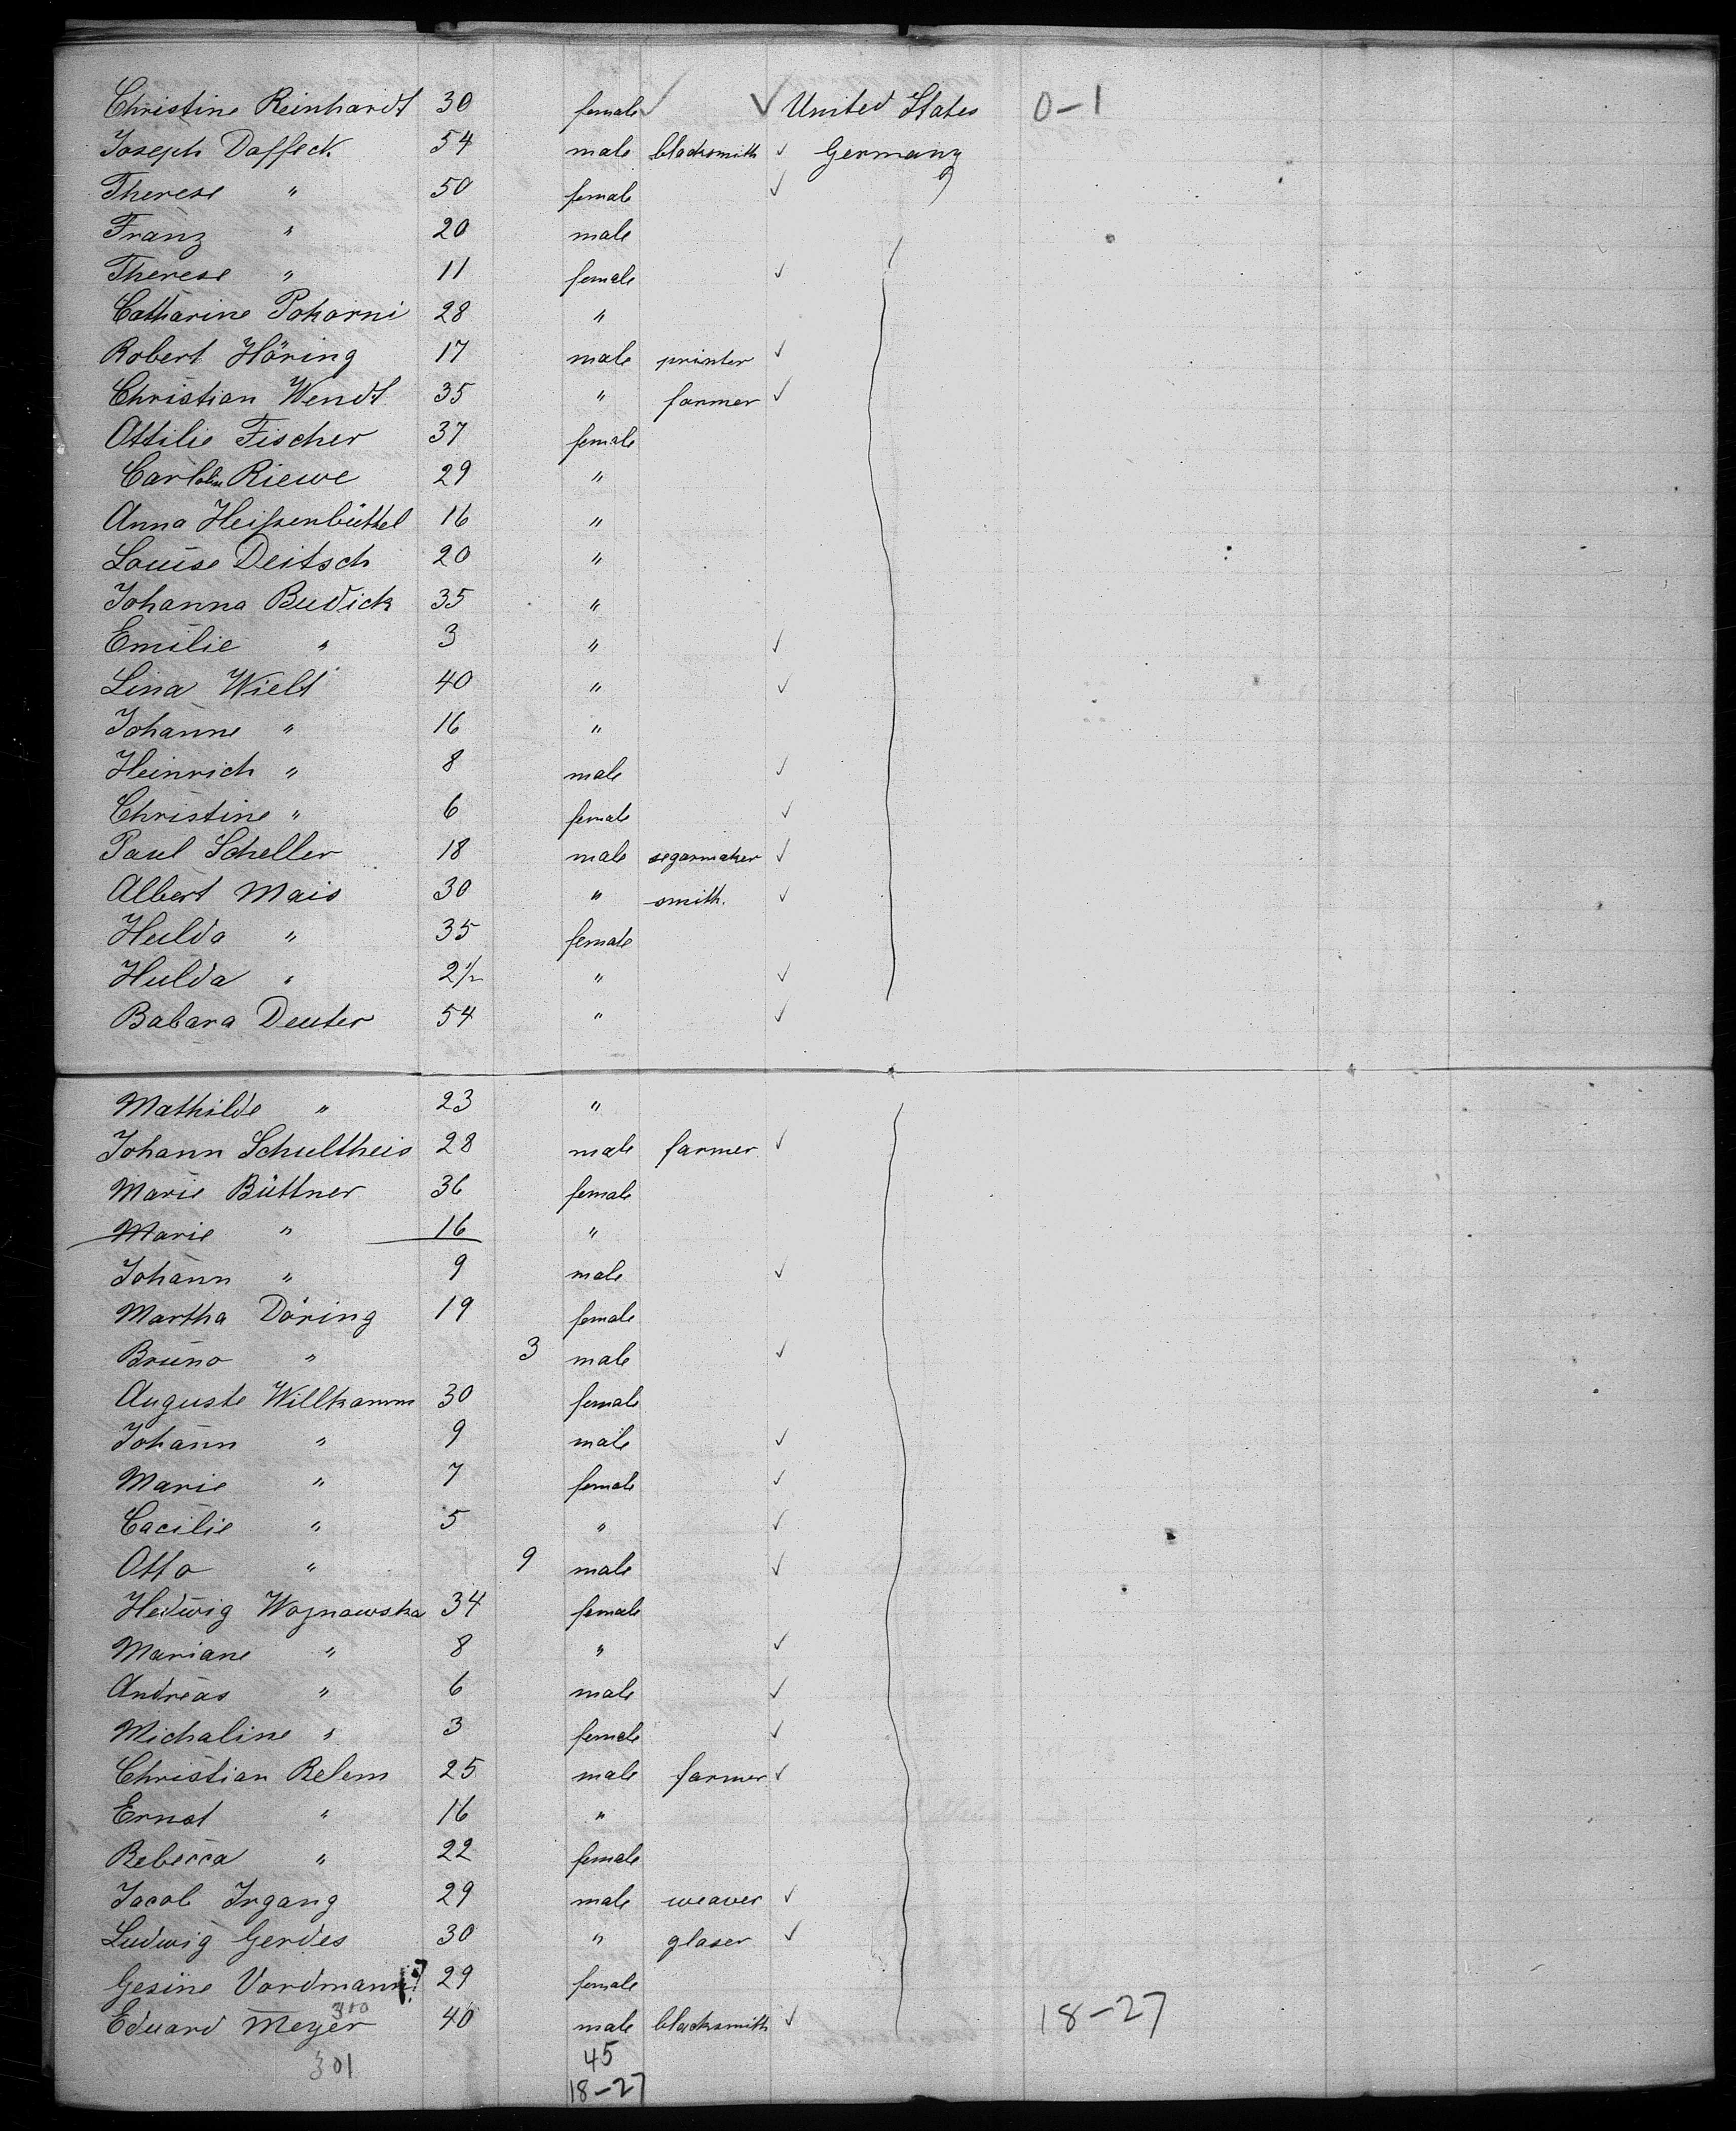 Christine Reinhardt 30 female ✓ ✓ United States 0-1
Joseph Daffeck 54 male blacksmith ✓ Germany
Therese " 50 female ✓
Franz " 20 male
Therese " 11 female ✓
Catharine Pokorni 28 "
Robert Höring 17 male printer ✓
Christian Wendt 35 " farmer ✓
Ottilie Fischer 37 female
Riewe 29 "
Anna Heißenbüttel 16 "
Louise Deitsch 20 "
Johanna Budick 35 "
Emilie " 3 " ✓
Lina Wielt 40 " ✓
Johanne " 16 "
Heinrich " 8 male ✓
Christine " 6 female ✓
Paul Scheller 18 male segarmaker ✓
Albert Mais 30 " smith. ✓
Hulda " 35 female
Hulda " 2½ " ✓
Babara Deuter 54 " ✓
Mathilde " 23 "
Johann Schultheis 28 male farmer ✓
Marie Büttner 36 female
Marie " 16 "
Johann " 9 male ✓
Martha Döring 19 female
Bruno " 3 male ✓
Auguste Willkamm 30 female
Johann " 9 male ✓
Marie " 7 female ✓
Cacilie " 5 " ✓
Otto " 9 male ✓
Hedwig Wojnowska 34 female
Mariane " 8 " ✓
Andreas " 6 male ✓
Michaline " 3 female ✓
Christian Relem 25 male farmer ✓
Ernst " 16 "
Rebecca " 22 female
Jacob Irgang 29 male weaver ✓
Ludwig Gerdes 30 " glaser ✓
Gesine Vordmann 29 female
Eduard Meyer 40 male blacksmith ✓ 18-27
301 45
18-27